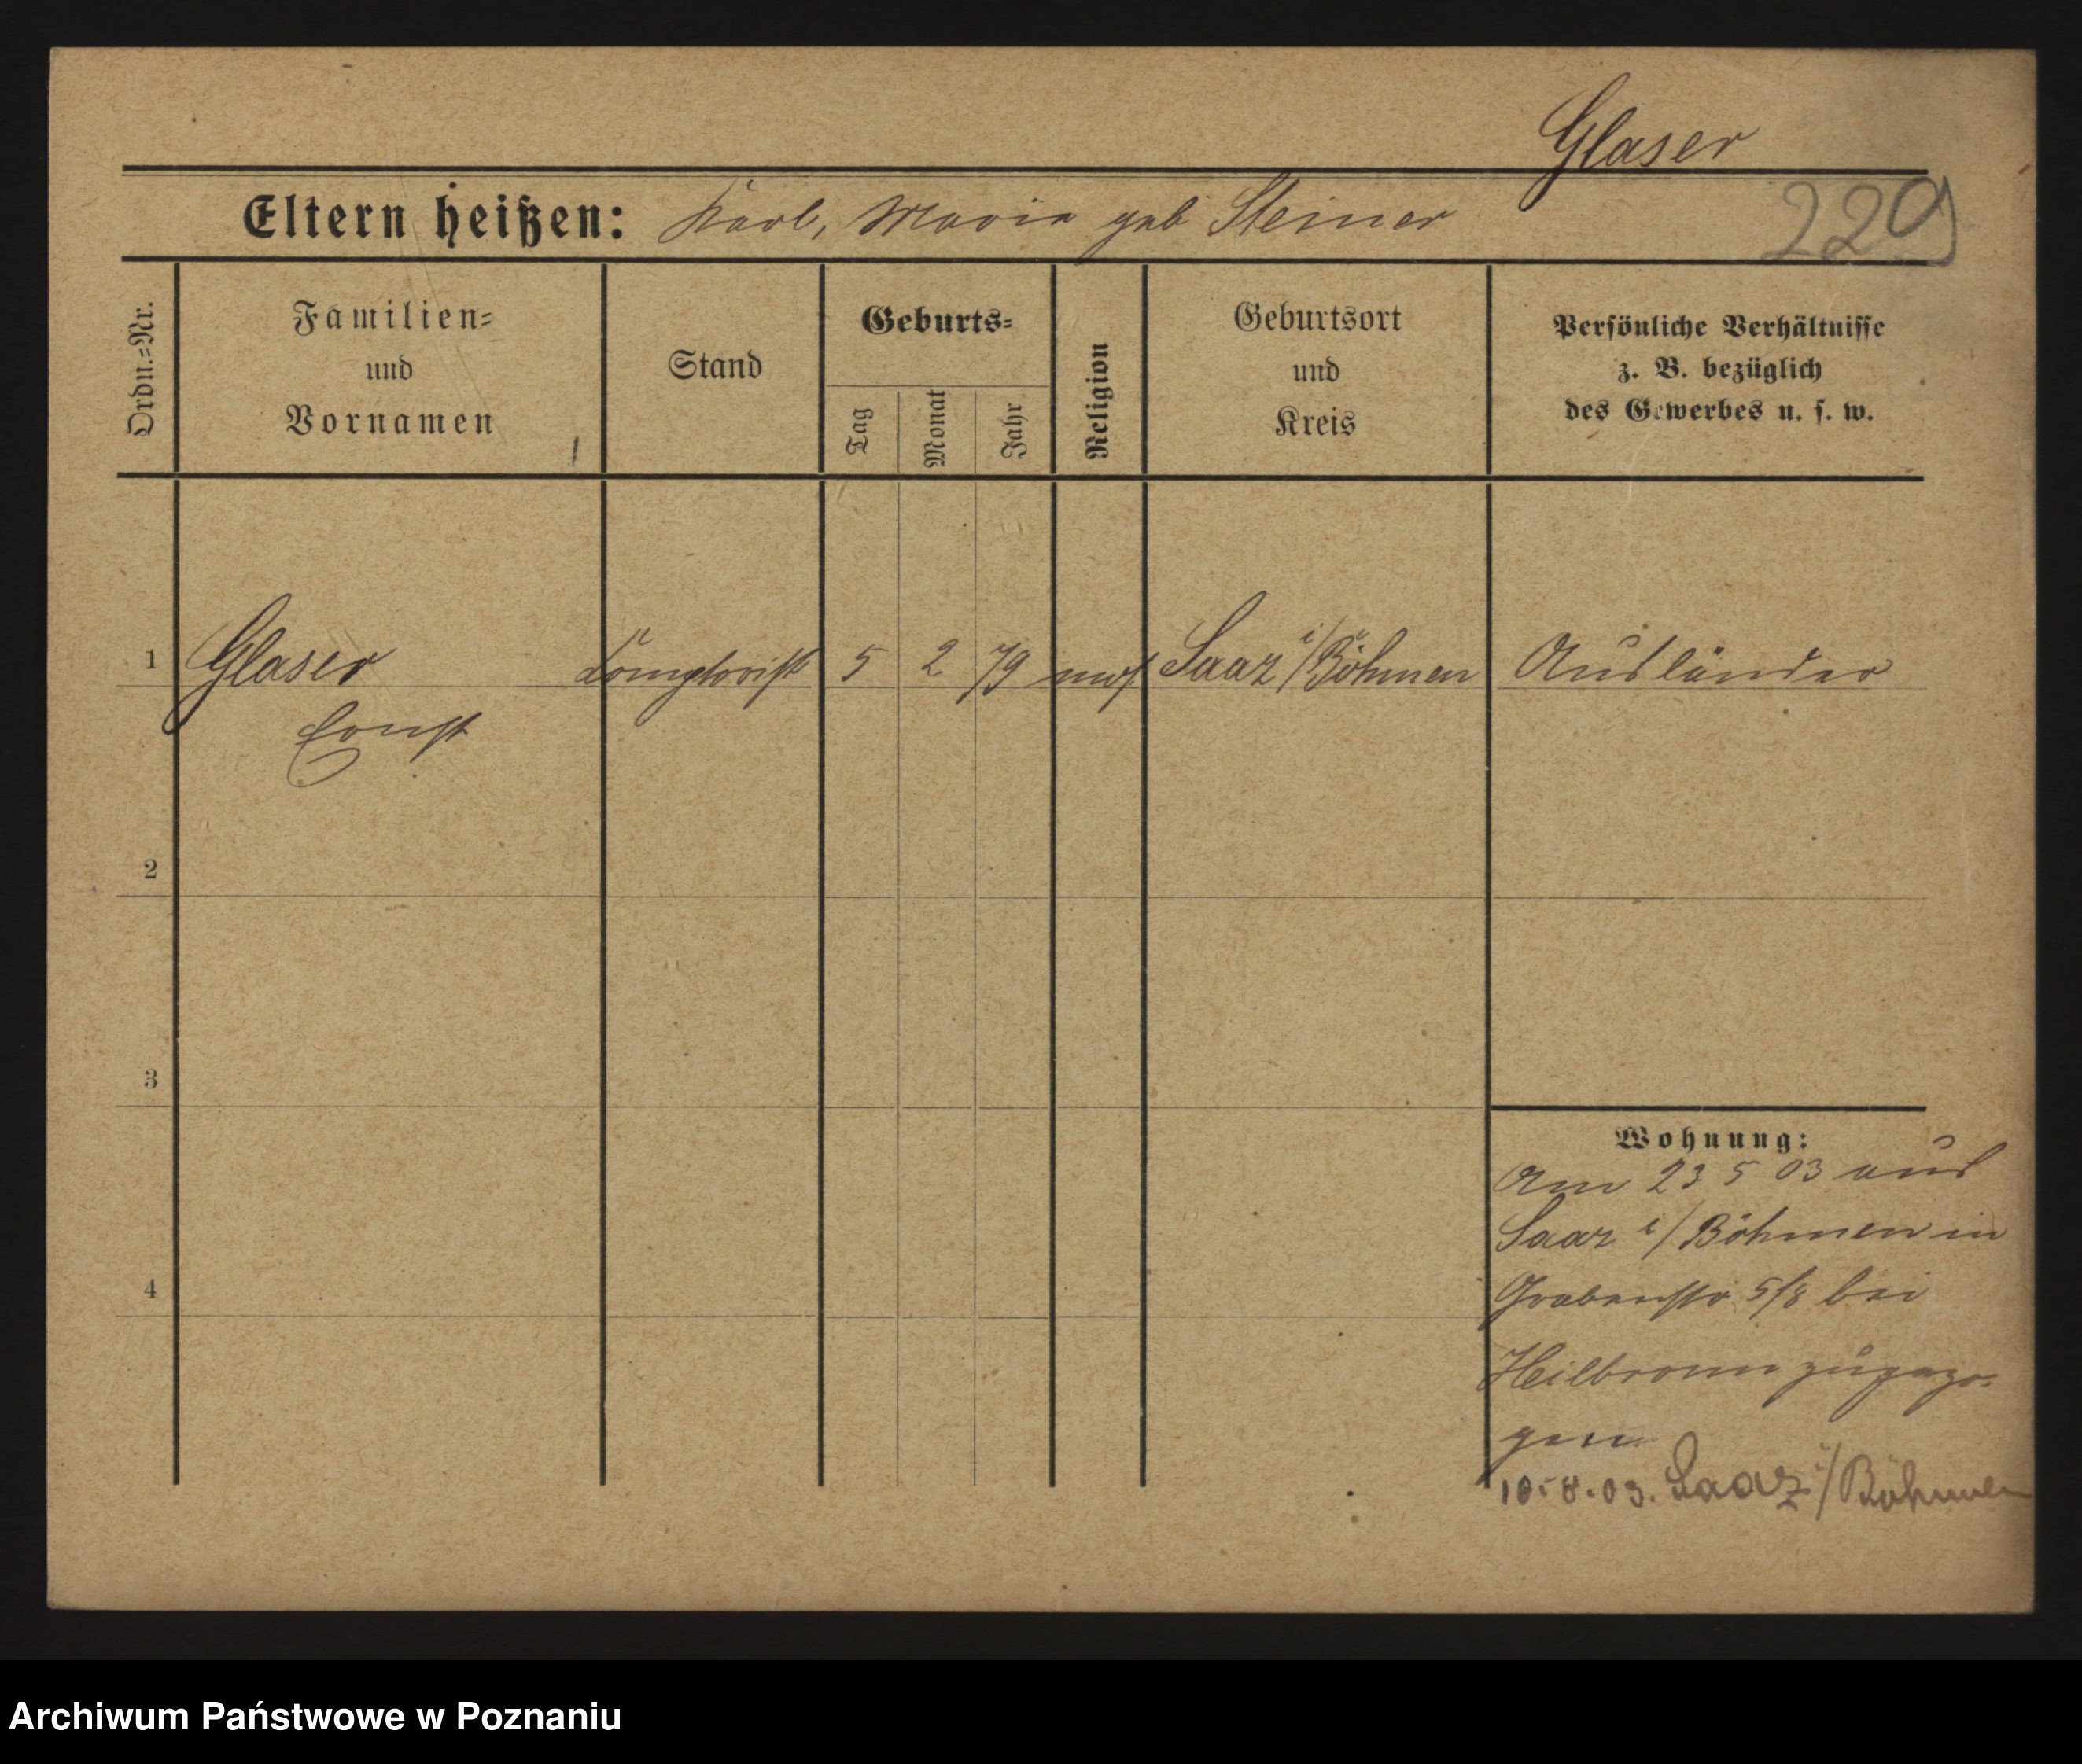 Glaser
Eltern heißen: Karl, Maria geb Steiner
229
Ordn.=Nr.
Familien=
und
Vornamen
Stand
Geburts=
Tag
Monat
Jahr
Religion
Geburtsort
und
Kreis
Persönliche Verhältnisse
z. B. bezüglich
des Gewerbes u. s. w.
1 Glaser 5 2 79 mos. Saaz i/Böhmen Ausländer
Ernst
2
3
4
Wohnung:
Am 23 5 03 aus
Saaz i/Böhmen in
Grabenstr 5/8 bei
Heilbronn zugezo-
gen
10.8.03. Saaz i/Böhmen
Archiwum Państwowe w Poznaniu